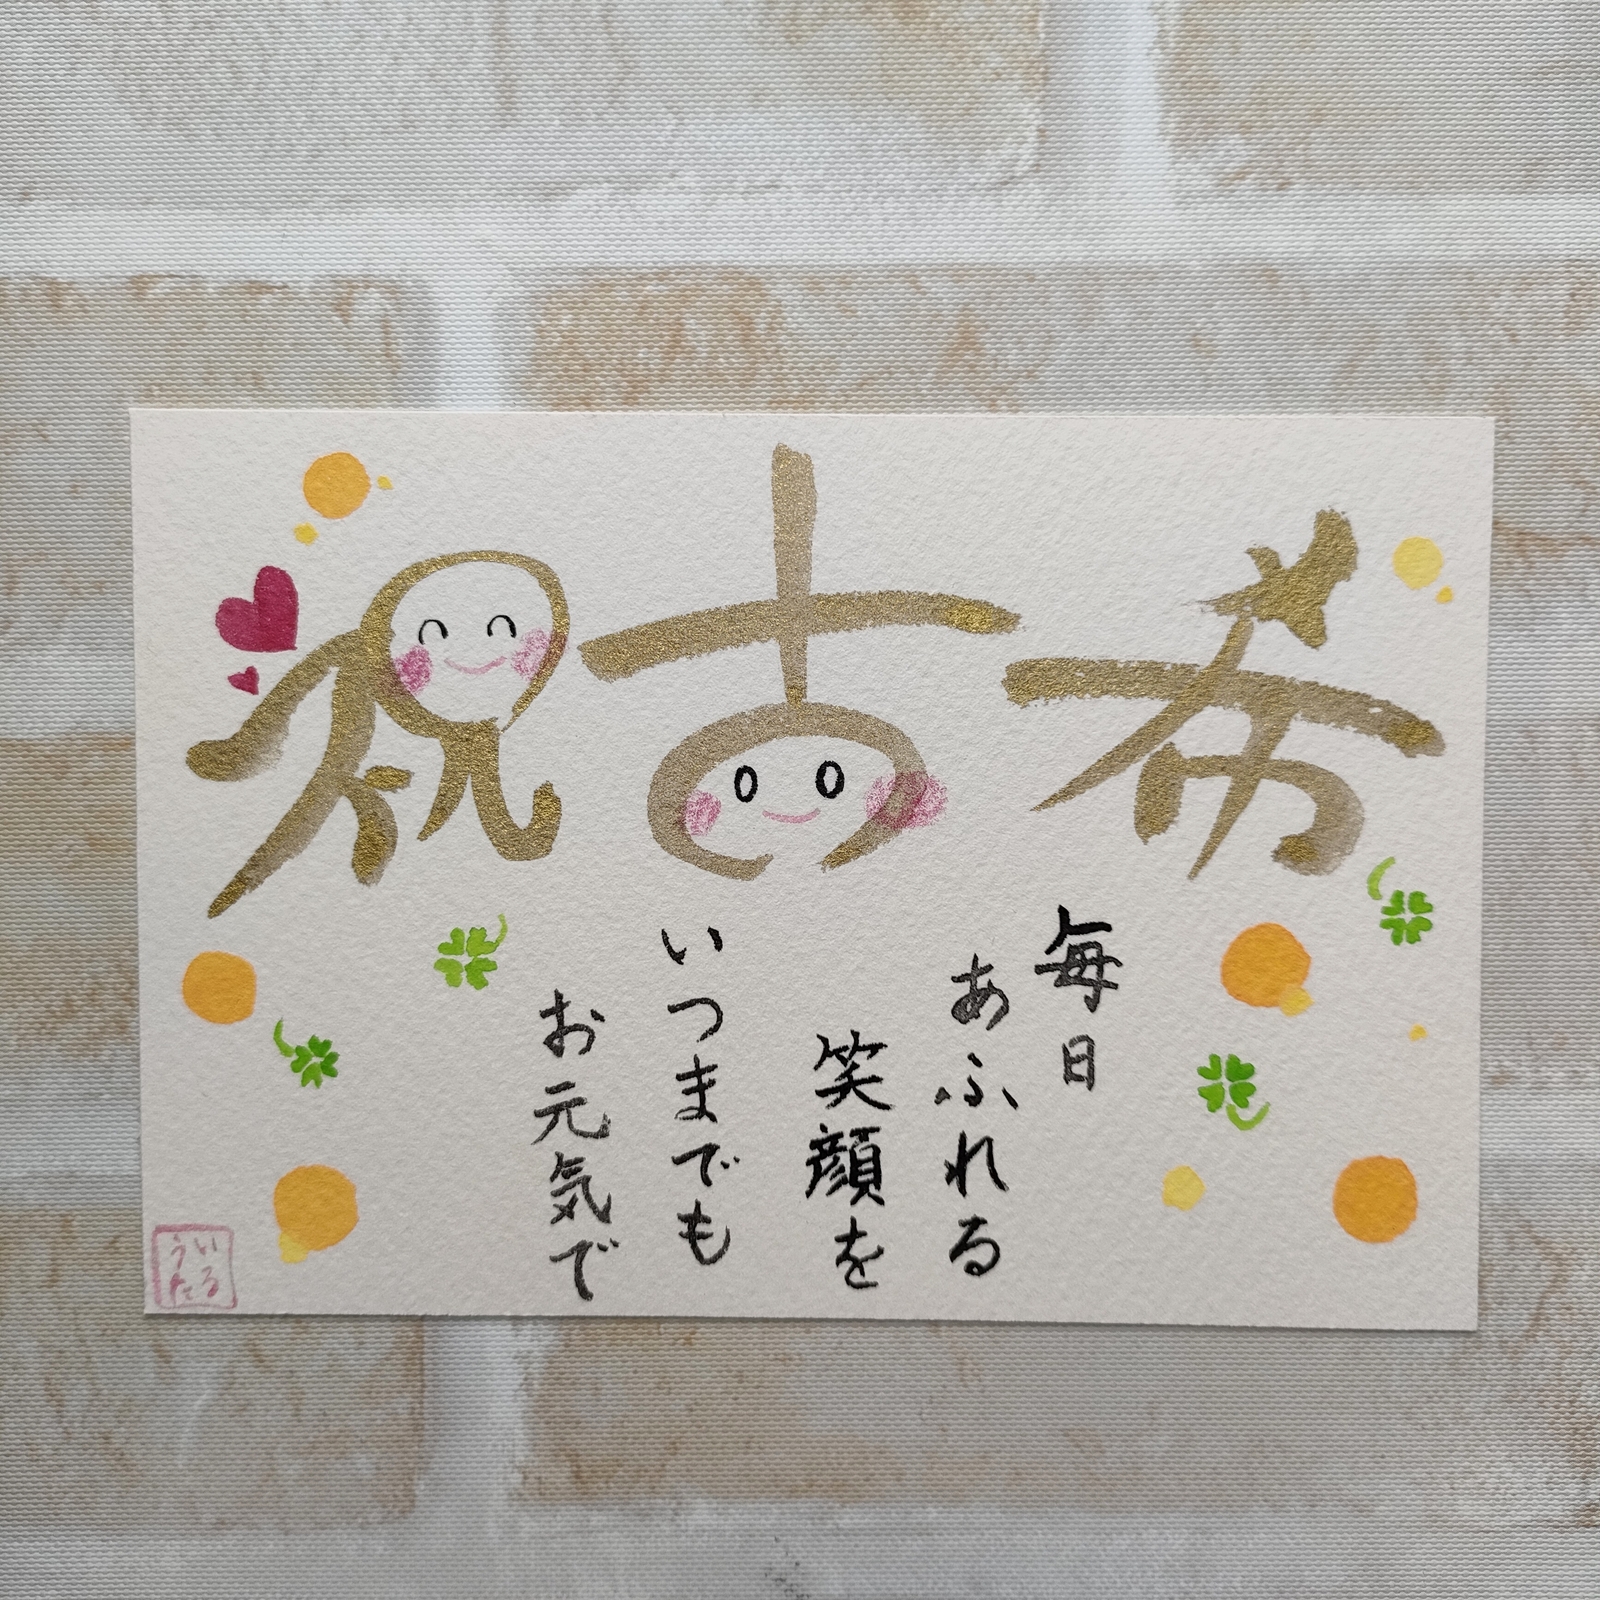 祝古希
毎日
あふれる
笑顔を
いつまでも
お元気で